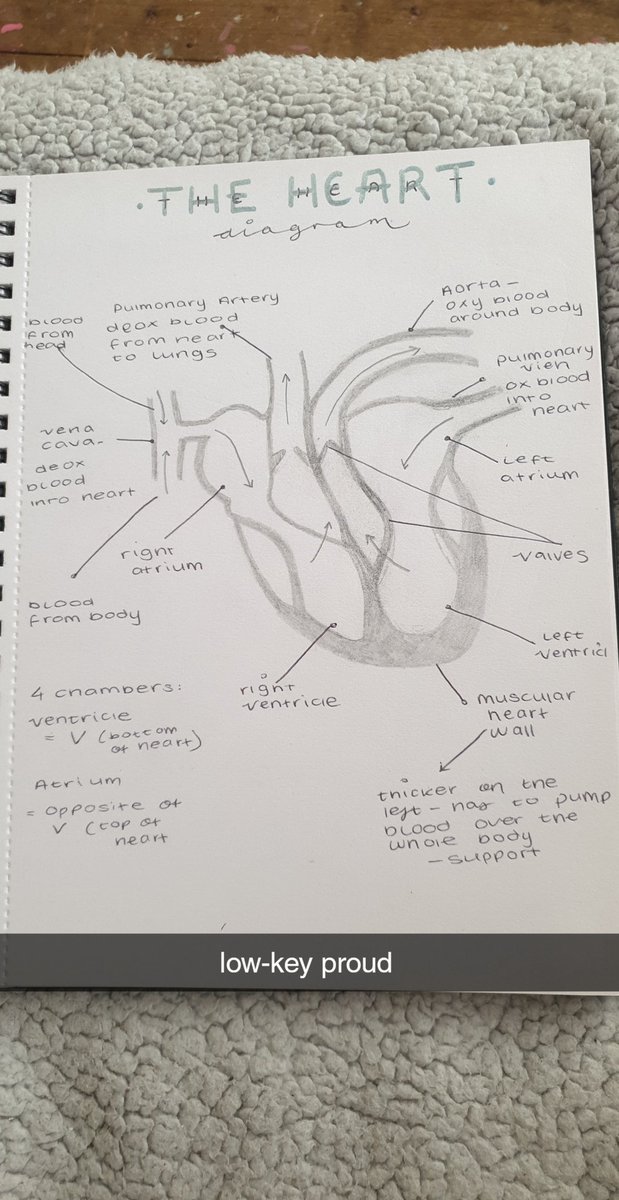 · THE HEART ·
diagram
blood
from
head
Pulmonary Artery
deox blood
from heart
to lungs
Aorta -
oxy blood
around body
pulmonary
vien
ox blood
into
heart
vena
cava -
deox
blood
into heart
Left
atrium
right
atrium
valves
blood
from body
Left
ventricl
right
ventricle
muscular
heart
wall
4 chambers:
ventricle
= V (bottom
of heart)
Atrium
= opposite of
V (top of
heart
thicker on the
left - has to pump
blood over the
whole body
- support
low-key proud